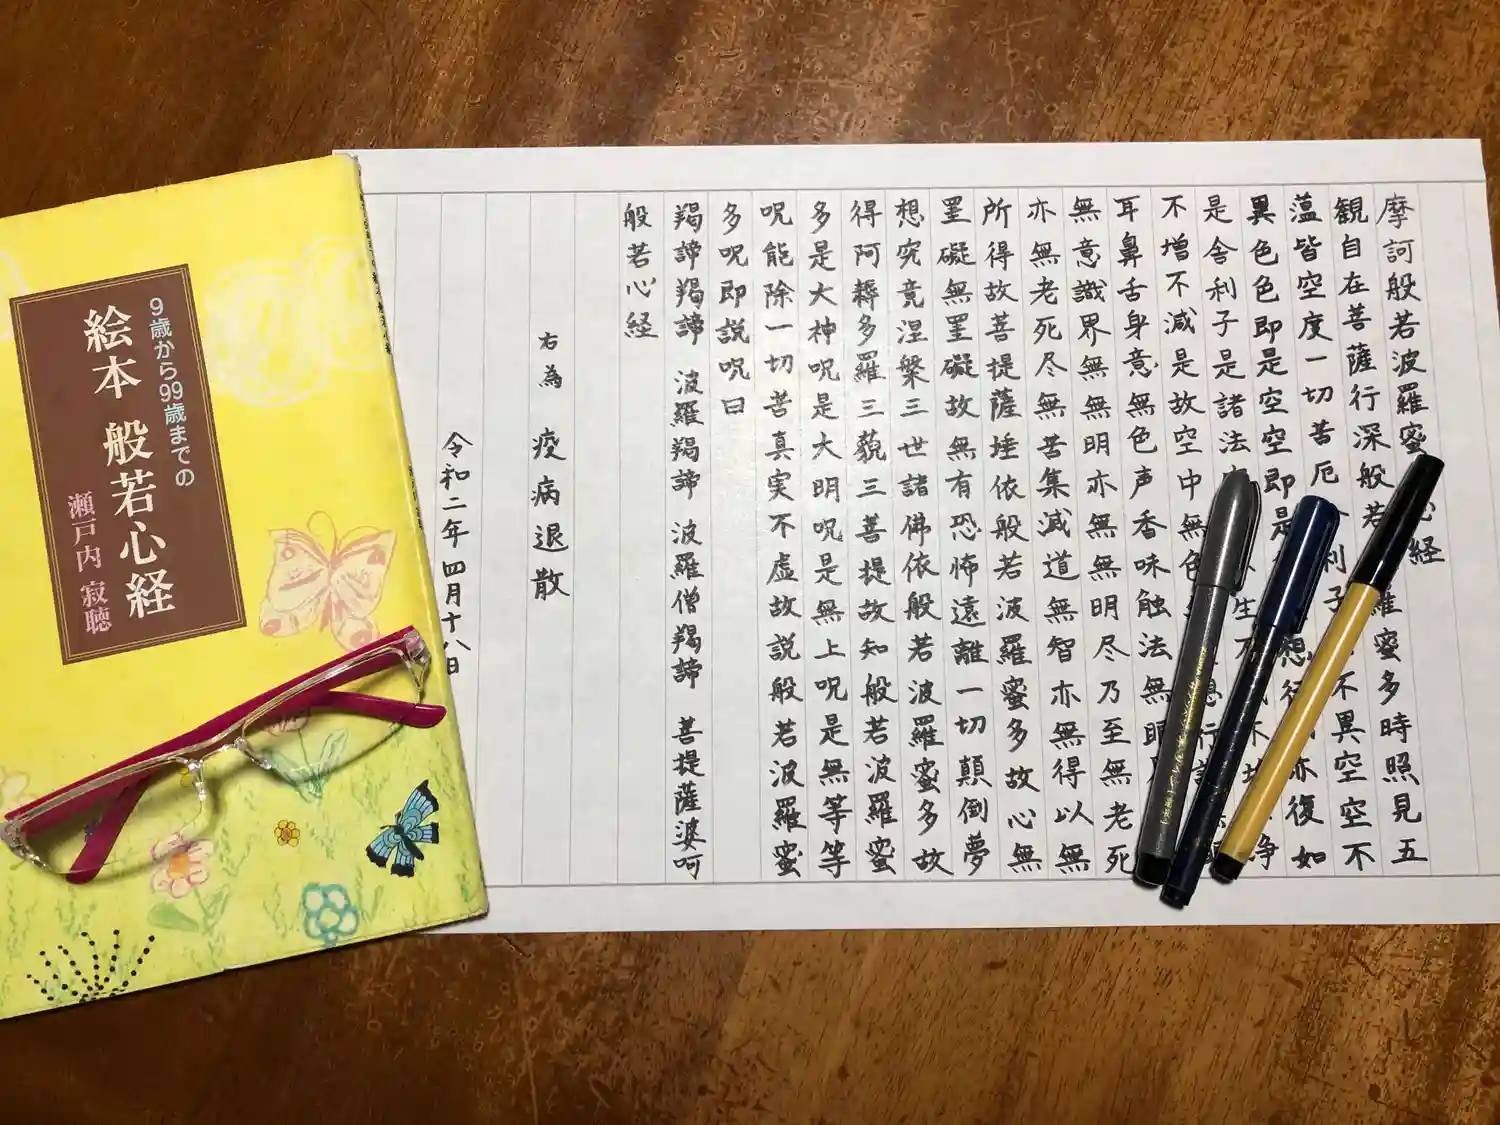 9歳から99歳までの
絵本 般若心経
瀬戸内 寂聴
摩訶般若波羅蜜心経
観自在菩薩行深般若羅蜜多時照見五
蘊皆空度一切苦厄利子不異空空不
異色色即是空空即是想行亦復如
是舎利子是諸法生不不浄
不増不減是故空中無色想行
耳鼻舌身意無色声香味触法無眼
無意識界無無明亦無無明尽乃至無老死
亦無老死尽無苦集減道無智亦無得以無
所得故菩提薩埵依般若波羅蜜多故心無
罣礙無罣礙故無有恐怖遠離一切顛倒夢
想究竟涅槃三世諸佛依般若波羅蜜多故
得阿耨多羅三藐三菩提故知般若波羅蜜
多是大神呪是大明呪是無上呪是無等等
呪能除一切苦真実不虚故説般若波羅蜜
多呪即説呪曰
羯諦羯諦 波羅羯諦 波羅僧羯諦 菩提薩婆呵
般若心経
右為 疫病退散
令和二年四月十八日